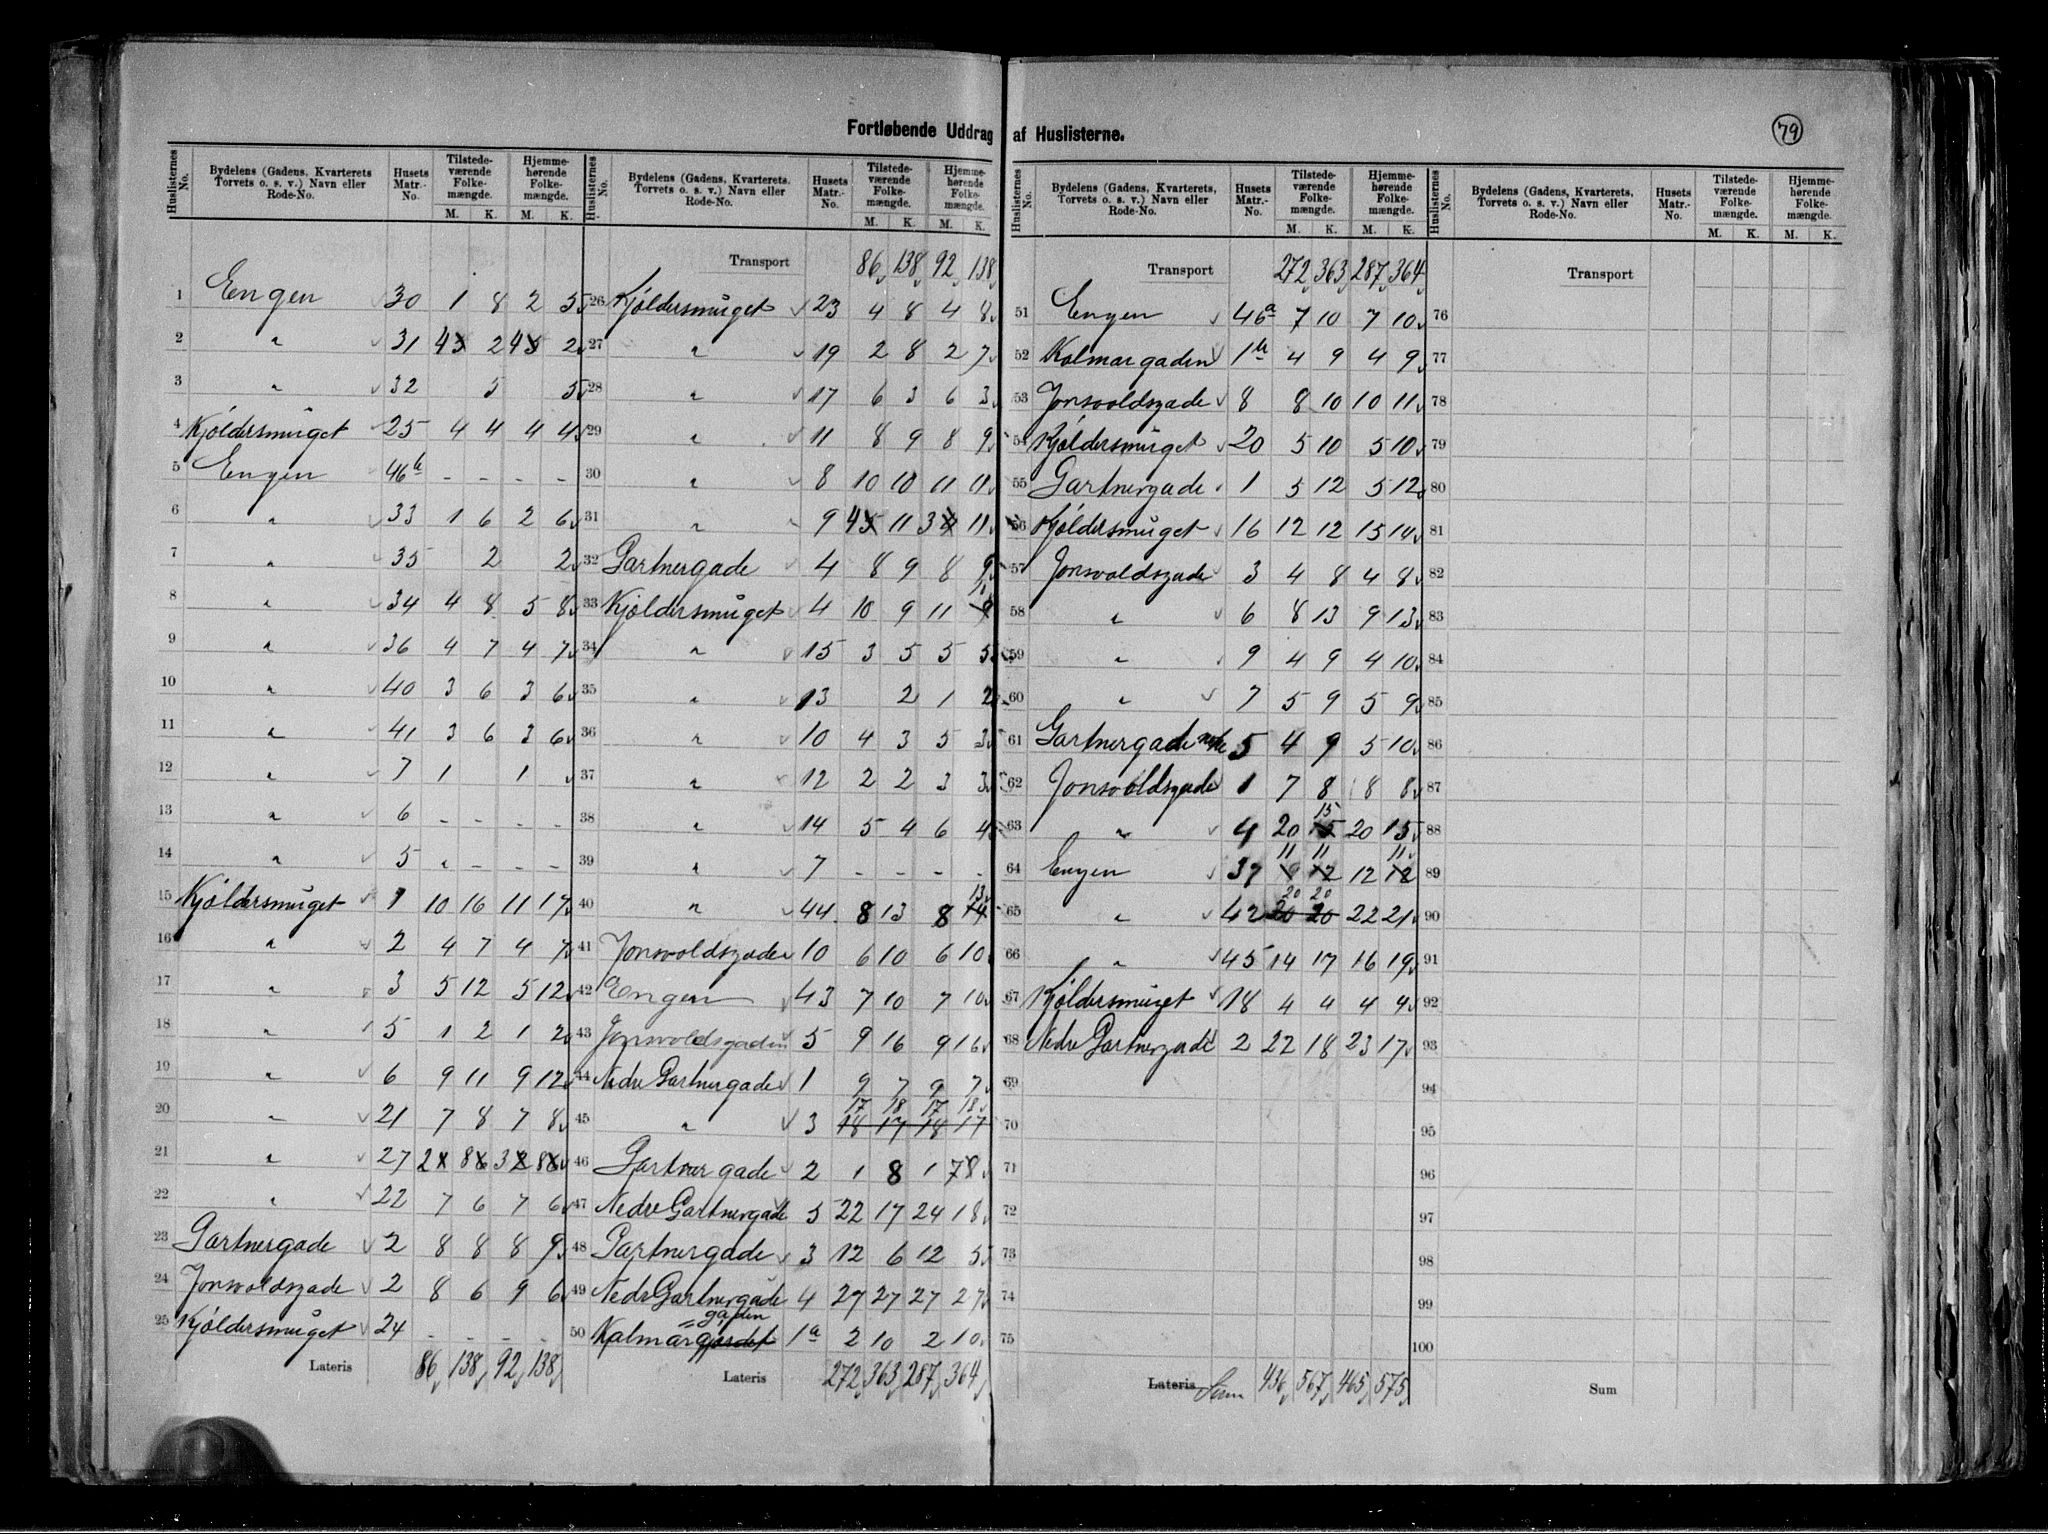 Fortløbende Uddrag af Huslisterne.
79
Huslisternes No. | Bydelens (Gadens, Kvarterets, Torvets o. s. v.) Navn eller Rode-No. | Husets Matr.-No. | Tilstedeværende Folkemængde. M. K. | Hjemmehørende Folkemængde. M. K.
1 Engen 30 1 8 2 5
2 " 31 4 2 4 2
3 " 32 5 5
4 Kjøldersmuget 25 4 4 4 4
5 Engen 46b - - - -
6 " 33 1 6 2 6
7 " 35 2 2
8 " 34 4 8 5 8
9 " 36 4 7 4 7
10 " 40 3 6 3 6
11 " 41 3 6 3 6
12 " 7 1 1
13 " 6 - - - -
14 " 5 - - - -
15 Kjøldersmuget 1 10 16 11 17
16 " 2 4 7 4 7
17 " 3 5 12 5 12
18 " 5 1 2 1 2
19 " 6 9 11 9 12
20 " 21 7 8 7 8
21 " 27 2 8 3 8
22 " 22 7 6 7 6
23 Gartnergade 2 8 8 8 9
24 Jonsvoldsgade 2 8 6 9 6
25 Kjøldersmuget 24 - - - -
Lateris 86 138 92 138
Huslisternes No. | Bydelens (Gadens, Kvarterets, Torvets o. s. v.) Navn eller Rode-No. | Husets Matr.-No. | Tilstedeværende Folkemængde. M. K. | Hjemmehørende Folkemængde. M. K.
Transport 86 138 92 138
26 Kjøldersmuget 23 4 8 4 8
27 " 19 2 8 2 7
28 " 17 6 3 6 3
29 " 11 8 9 8 9
30 " 8 10 10 11 11
31 " 9 4 11 3 11
32 Gartnergade 4 8 9 8 9
33 Kjøldersmuget 4 10 9 11
34 " 15 3 5 5 5
35 " 13 2 1 2
36 " 10 4 3 5 3
37 " 12 2 2 3 3
38 " 14 5 4 6 4
39 " 7 - - - -
40 " 44 8 13 8 13
41 Jonsvoldsgade 10 6 10 6 10
42 Engen 43 7 10 7 10
43 Jonsvoldsgaden 5 9 16 9 16
44 Nedre Gartnergade 1 9 7 9 7
17 18 17 18
45 " 3 18 17 18 17
46 Gartnergade 2 1 8 1 7
47 Nedre Gartnergade 5 22 17 24 18
48 Gartnergade 3 12 6 12 5
49 Nedre Gartnergade 4 27 27 27 27
gaden
50 Kalmargjordet 1a 2 10 2 10
Lateris 272 363 287 364
Huslisternes No. | Bydelens (Gadens, Kvarterets, Torvets o. s. v.) Navn eller Rode-No. | Husets Matr.-No. | Tilstedeværende Folkemængde. M. K. | Hjemmehørende Folkemængde. M. K.
Transport 272 363 287 364
51 Engen 46a 7 10 7 10
52 Kalmargaden 1b 4 9 4 9
53 Jonsvoldsgade 8 8 10 10 11
54 Kjøldersmuget 20 5 10 5 10
55 Gartnergade 1 5 12 5 12
56 Kjøldersmuget 16 12 12 15 14
57 Jonsvoldsgade 3 4 8 4 8
58 " 6 8 13 9 13
59 " 9 4 9 4 10
60 " 7 5 9 5 9
61 Gartnergade 5 4 9 5 10
62 Jonsvoldsgade 1 7 8 8 8
15
63 " 4 20 15 20 15
11 11 11
64 Engen 37 12 12 12
20 20
65 " 42 20 20 22 21
66 " 45 14 17 16 19
67 Kjøldersmuget 18 4 4 4 4
68 Nedre Gartnergade 2 22 18 23 17
69
70
71
72
73
74
75
Lateris Sum 436 567 465 575
Huslisternes No. | Bydelens (Gadens, Kvarterets, Torvets o. s. v.) Navn eller Rode-No. | Husets Matr.-No. | Tilstedeværende Folkemængde. M. K. | Hjemmehørende Folkemængde. M. K.
Transport
76
77
78
79
80
81
82
83
84
85
86
87
88
89
90
91
92
93
94
95
96
97
98
99
100
Sum